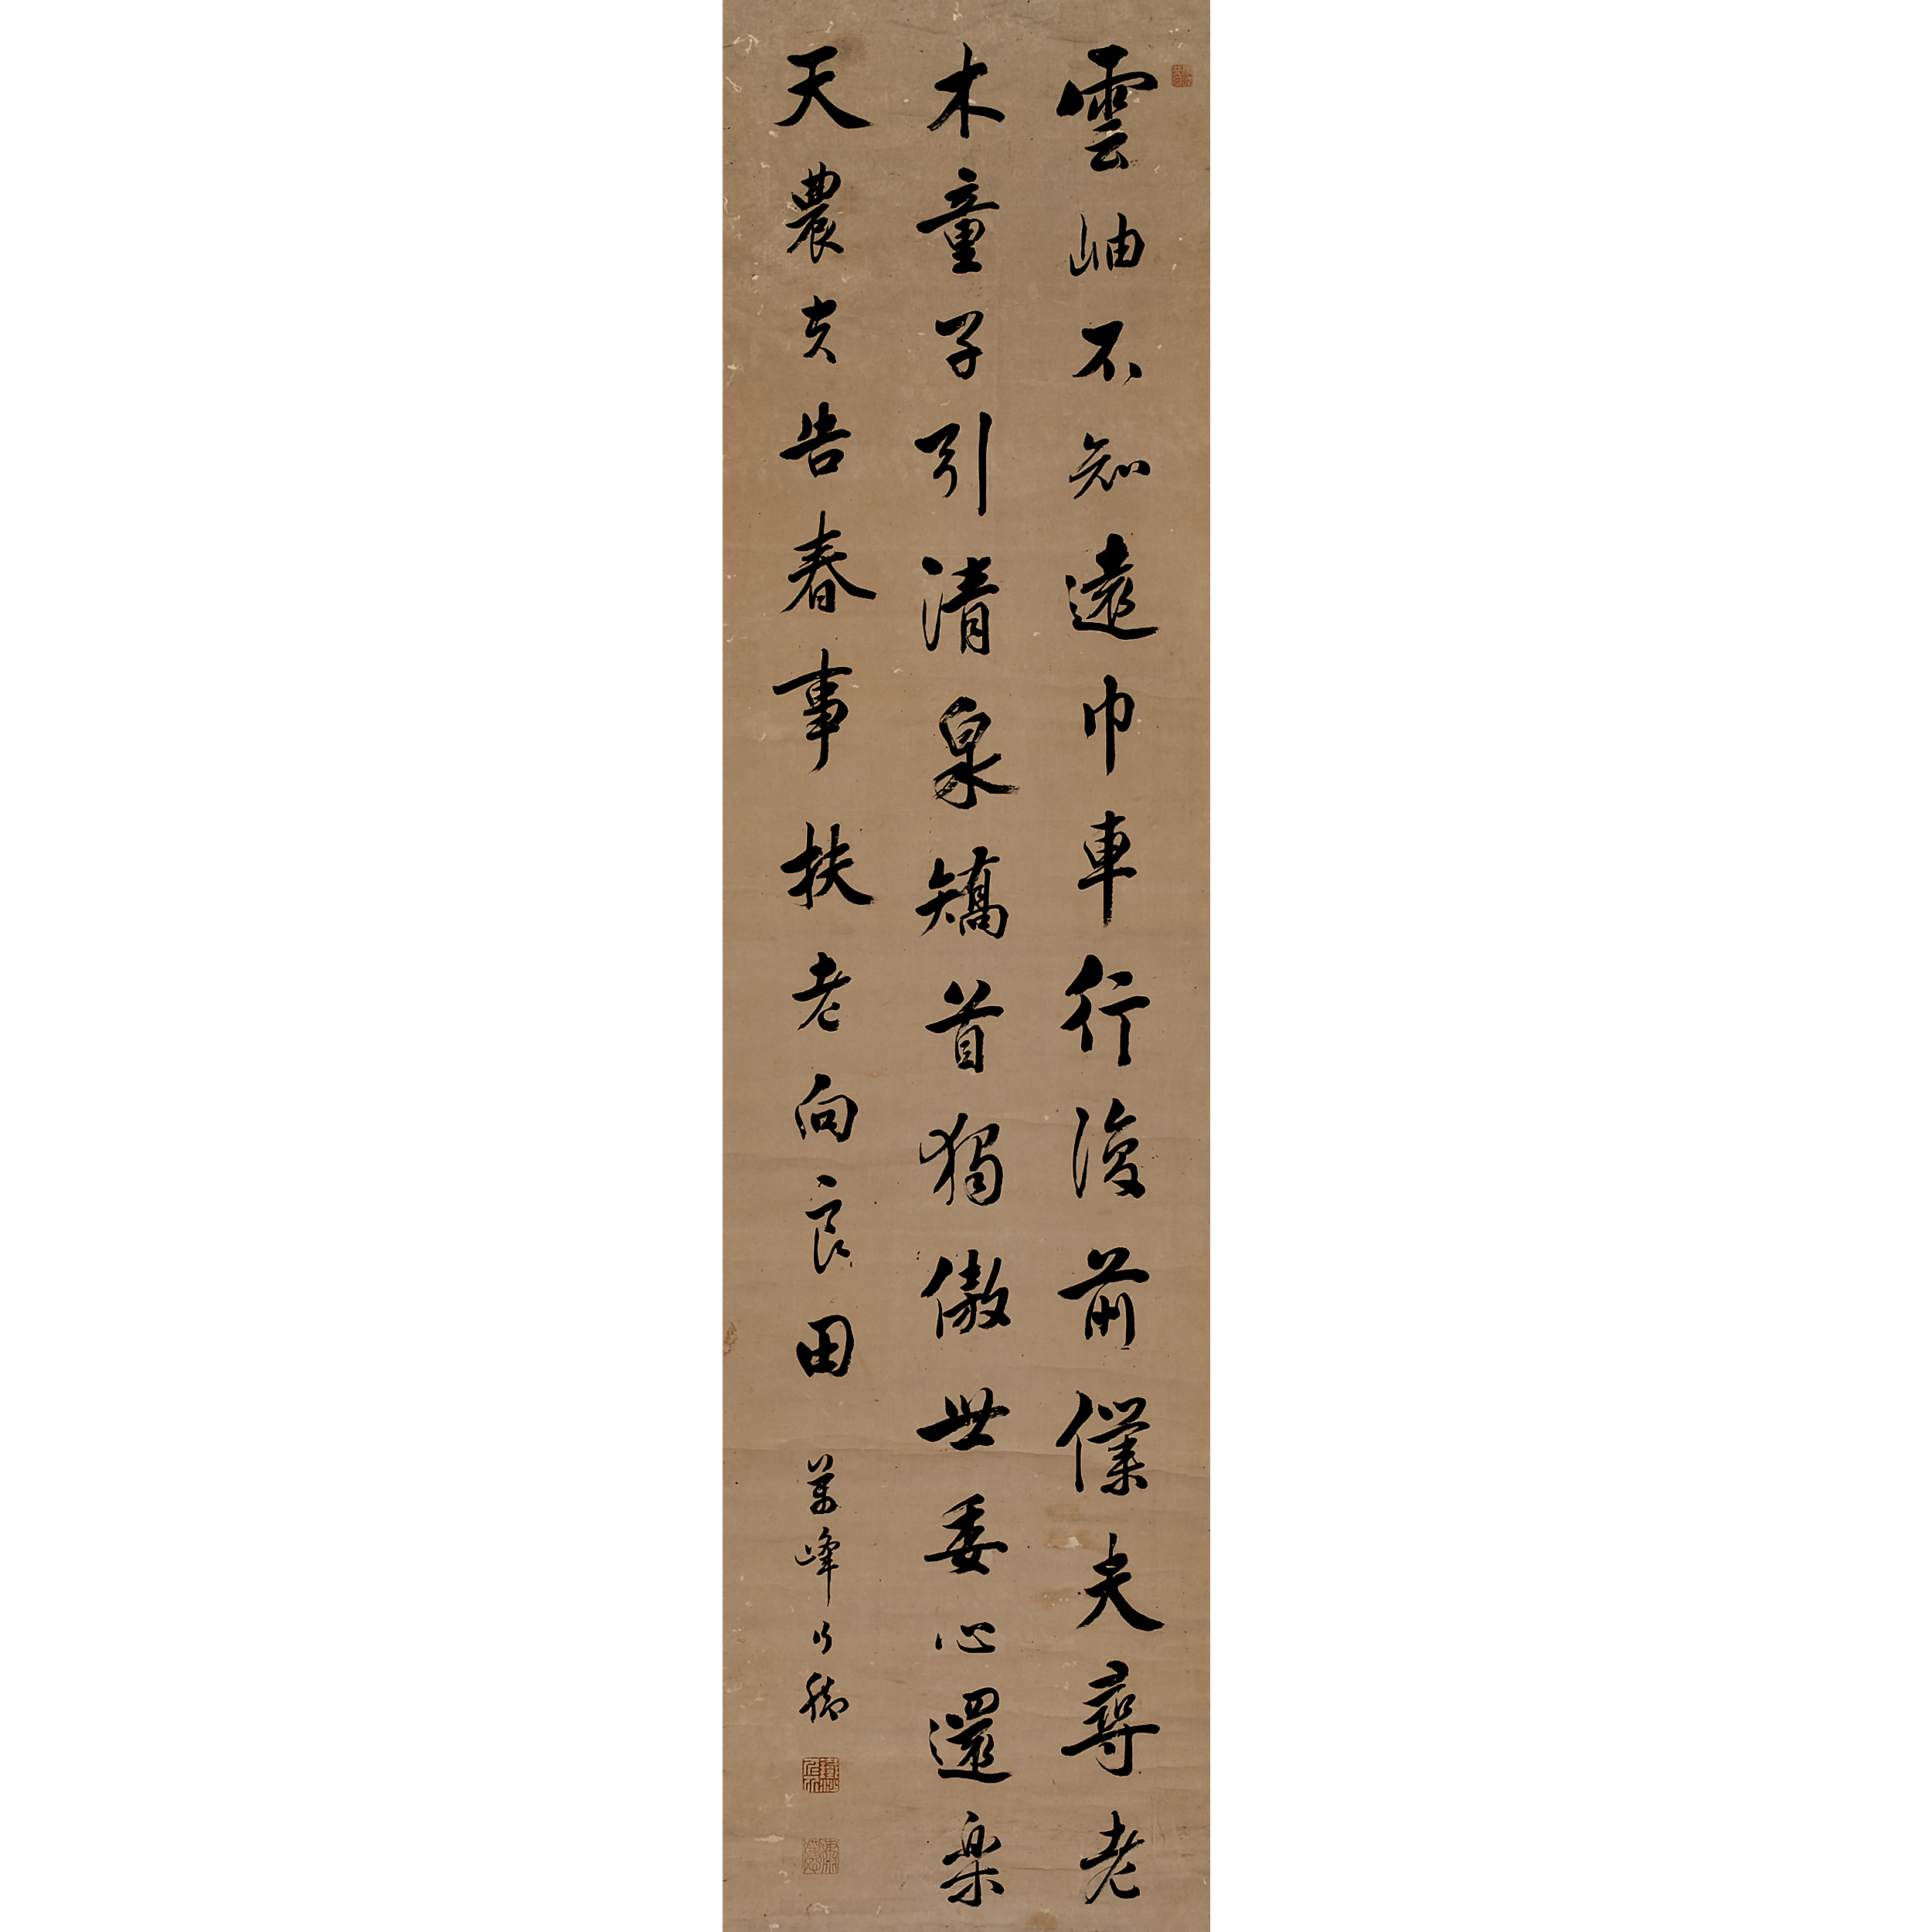 雲岫不知遠巾車行復前僕夫尋老
木童子引清泉矯首獨傲世委心還楽
天農夫告春事扶老向良田
萬峰